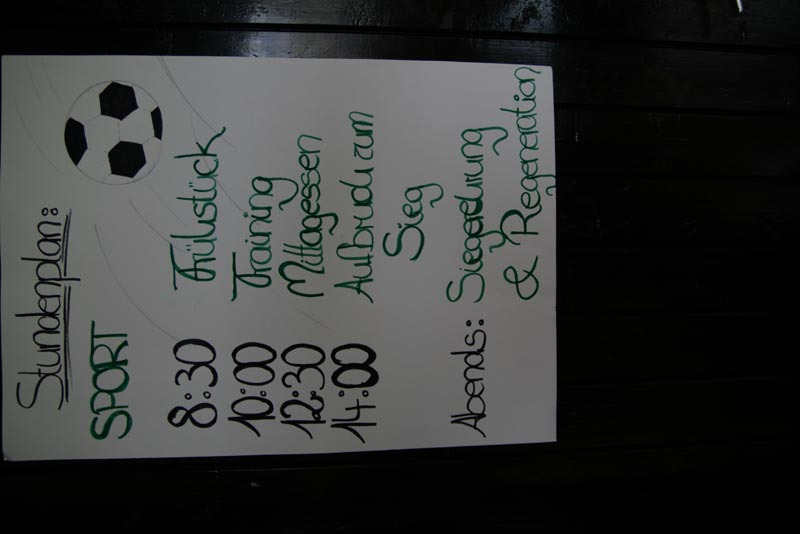 Stundenplan:
SPORT
8:30 Frühstück
10:00 Training
12:30 Mittagessen
14:00 Aufbruch zum
Sieg
Abends: Siegerehrung
& Regeneration